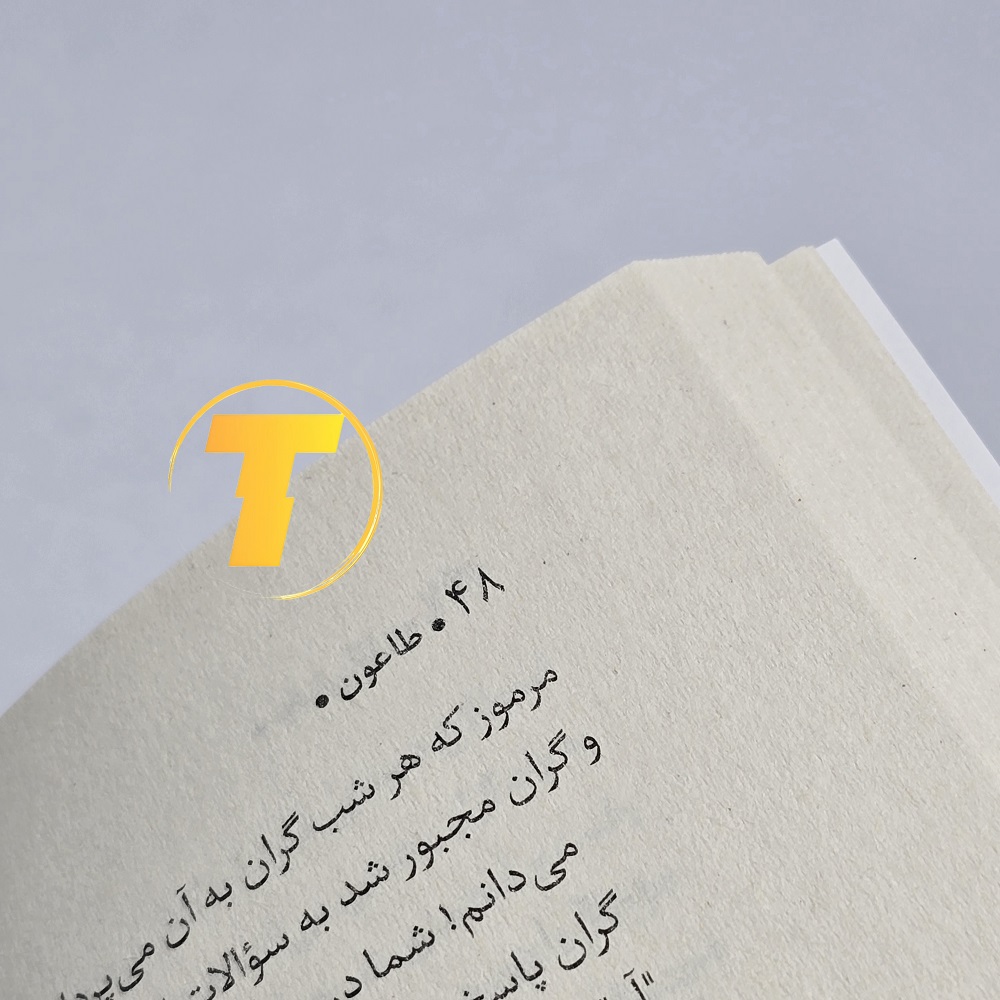 T
۴۸ • طاعون •
مرموز که هر شب گران به آن
و گران مجبور شد به سؤالات
می‌دانم! شما
گران